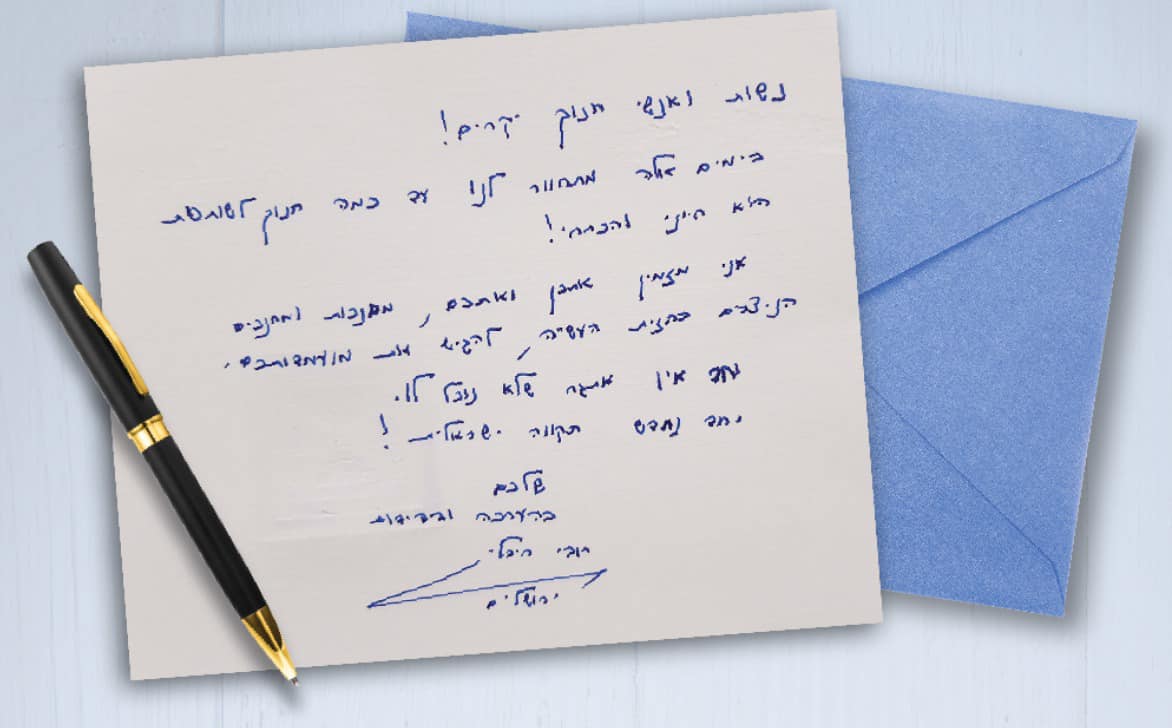 נשות ואנשי חנוך יקרים!
בימים אלה מתחוור לנו עד כמה חנוך לשותפות
הוא חיוני והכרחי!
אני מזמין אתכן ואתכם, מחנכות ומחנכים
הניצבים בחזית העשיה, להגיש את מועמדותכם.
יחד אין אתגר שלא נוכל לו.
יחד נחדש תקווה ישראלית!
שלכם
בהערכה ובידידות
ירושלים